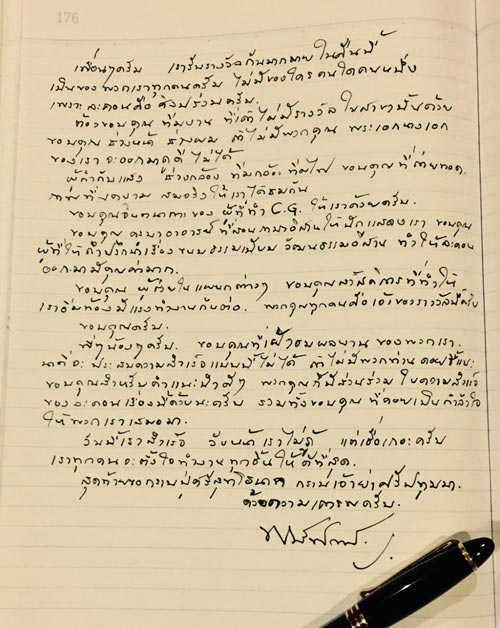 176
เพื่อนๆครับ เรารับรางวัลกันมากมาย ในคืนนี้
เป็นของพวกเราทุกคนครับ ไม่ใช่ของใครคนใดคนหนึ่ง
เพราะละครคือศิลปร่วมครับ.
ต้องขอบคุณ ทีมงาน ที่ได้ไม่มีรางวัล ในสาขานั้นด้วย
ขอบคุณ ช่างหน้า ช่างผม ถ้าไม่มีพวกคุณ พระเอกนางเอก
ของเรา จะออกมาดูดี ไม่ได้
ผู้กำกับแสง ช่างกล้อง ทีมกล้อง ทีมไฟ ขอบคุณที่ถ่ายทอด
ภาพที่งดงาม สมจริงให้เราได้ชมกัน
ขอบคุณจินตนาการของ ผู้ที่ทำ C.G. ให้เราด้วยครับ.
ขอบคุณ ครูบาอาจารย์ ที่สอนภาษาอีสานให้นักแสดงเรา ขอบคุณ
ผู้ที่ให้คำปรึกษาเรื่องขนบธรรมเนียม วัฒนธรรมอีสาน ทำให้ละคร
ออกมามีคุณค่ามาก.
ขอบคุณ ผู้ช่วยในแผนกต่างๆ ขอบคุณสวัสดิการที่ทำให้
เราอิ่มท้องมีแรงทำงานกันต่อ. พวกคุณทุกคนคือเจ้าของรางวัลนี้ครับ
ขอบคุณครับ.
พี่ๆน้องๆครับ. ขอบคุณที่เฝ้าชมผลงาน ของพวกเรา.
นาคี จะประสบความสำเร็จ แบบนี้ไม่ได้ ถ้าไม่มีพวกท่านคอยชี้แนะ
ขอบคุณสำหรับคำแนะนำดีๆ พวกคุณก็มีส่วนร่วม ในความสำเร็จ
ของละครเรื่องนี้ด้วยนะครับ รวมทั้งขอบคุณ ที่คอยเป็นกำลังใจ
ให้พวกเราเสมอมา.
วันนี้เราสำเร็จ วันหน้าเราไม่รู้ แต่เชื่อเถอะครับ
เราทุกคนจะตั้งใจทำงานทุกชิ้นให้ดีที่สุด.
สุดท้ายขอกราบปู่ศรีสุทโธนาค กราบเจ้าย่าศรีปทุมมา.
ด้วยความเคารพครับ.